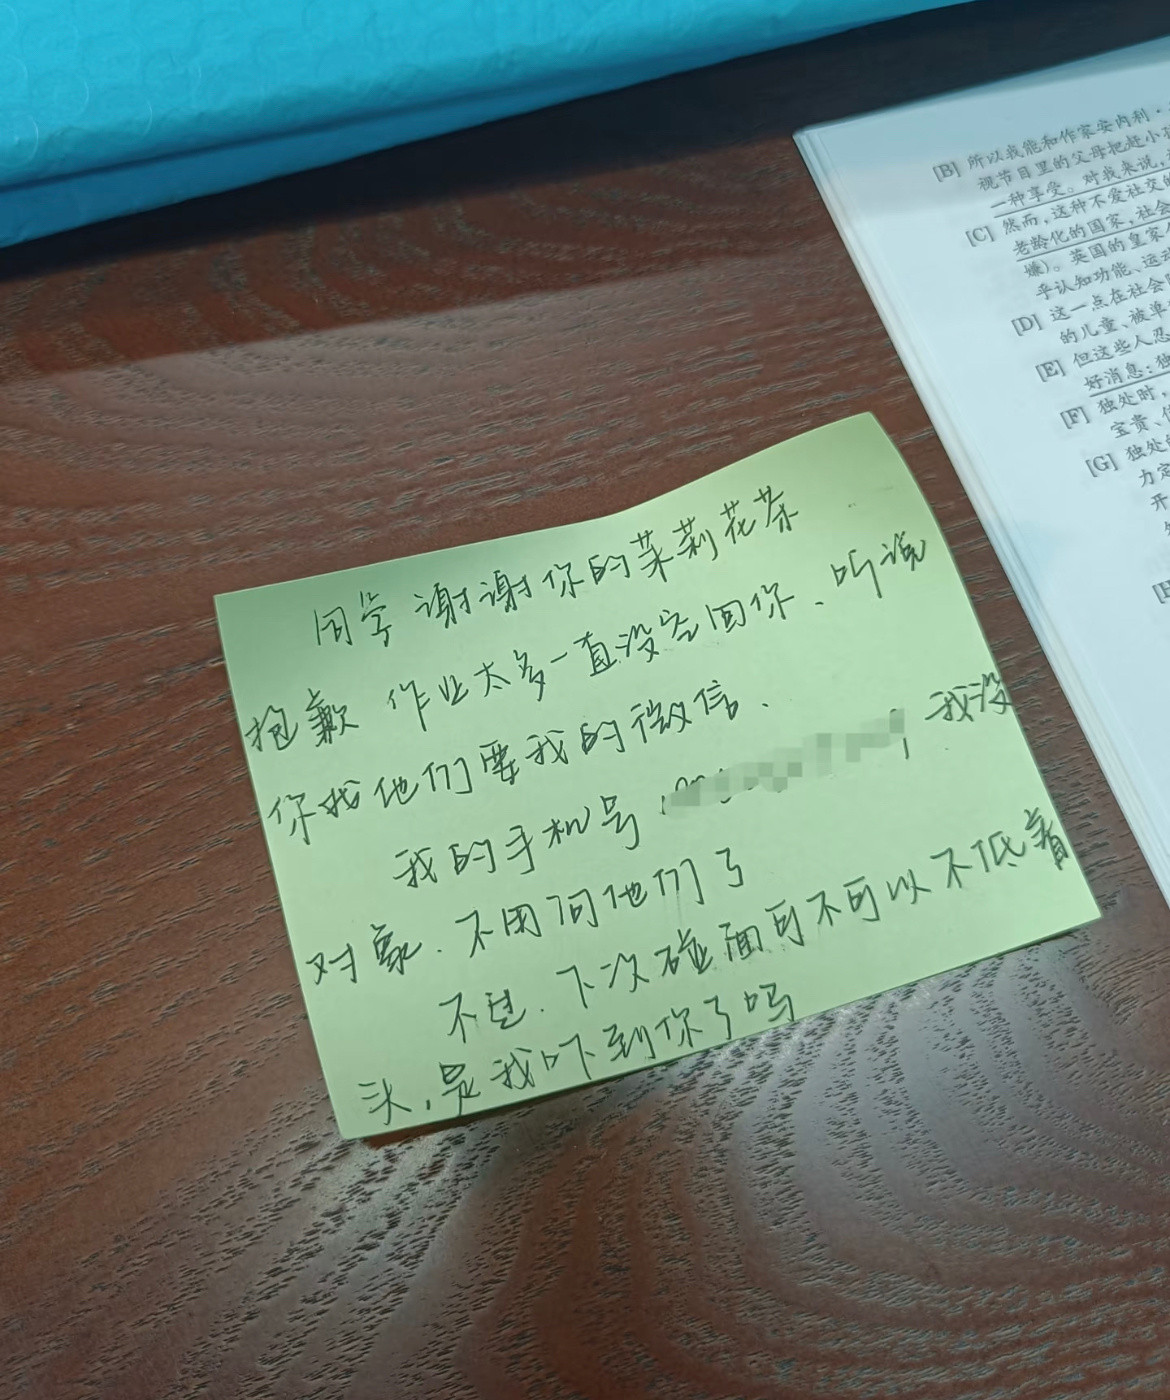 同学 谢谢你的茉莉花茶
抱歉 作业太多一直没空回你、听说
你找他们要我的微信、
我的手机号 我没
对象、不用问他们了
不过、下次碰面可不可以不低着
头,是我吓到你了吗
[B] 所以我能和作家安内利·
视节目里的父母把赶小
一种享受。对我来说,
[C] 然而,这种不爱社交的
老龄化的国家,社会
嫌)。英国的皇家
乎认知功能、运动
[D] 这一点在社会
的儿童、被单
[E] 但这些人忍
好消息:独
[F] 独处时,
宝贵、
[G] 独处
力
开